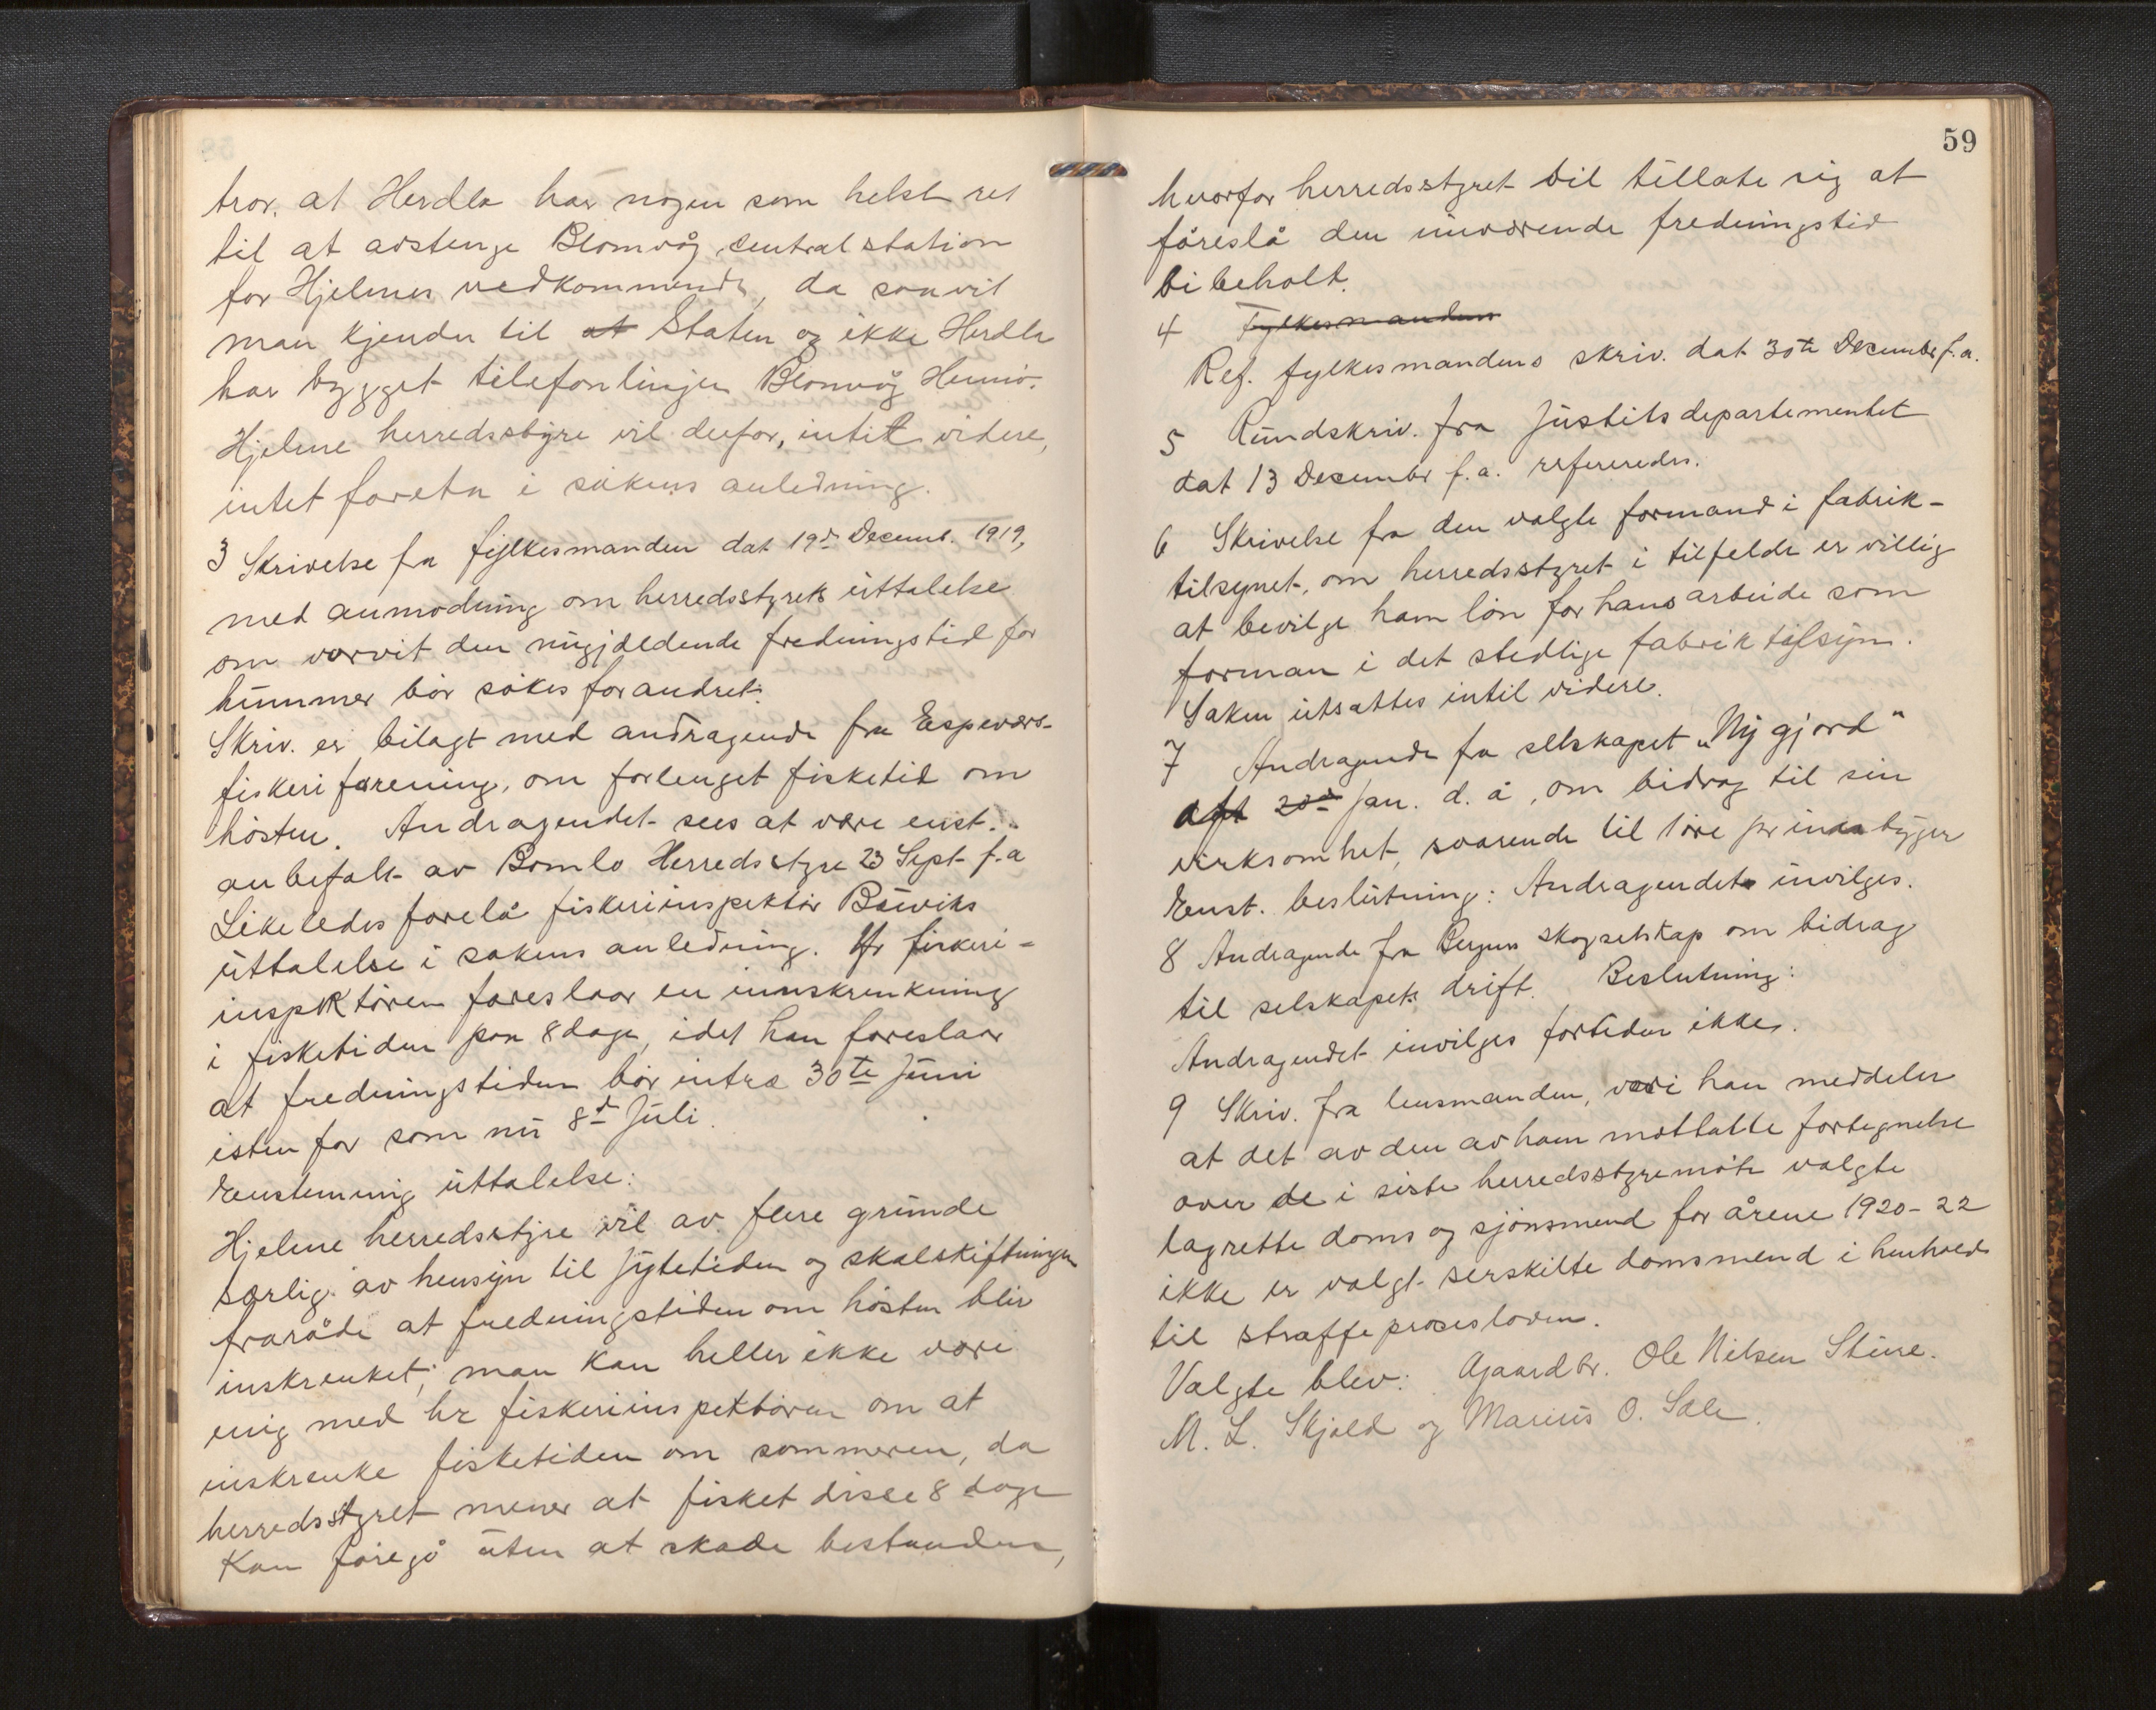 tror, at Herdla har nogen som helst ret
til at avstenge Blomvåg sentralstation
for Hjelmes vedkommende, da saavit
man kjender til at Staten og ikke Herdla
har bygget telefonlinjen Blomvåg Hernö.
Hjelme herredsstyre vil derfor, intil videre,
intet foreta i sakens anledning.
3 Skrivelse fra fylkesmanden dat 19de Decemb. 1919,
med anmodning om herredsstyrets uttalelse
om vorvit den nugjeldende fredningstid for
hummer bör sökes forandret.
Skriv. er bilagt med andragende fra Espeværs-
fiskeriforening, om forlenget fisketid om
hösten. Andragendet sees at være enst.
anbefalt av Bömlo Herredsstyre 23 Sept f.a
Likeledes forelå fiskeriinspektör Böwiks
uttalelse i sakens anledning. Hr fiskeri-
inspektören foreslaar en innskrenkning
i fisketiden paa 8 dage, idet han foreslaar
at fredningstiden bör intræ 30te Juni
isten for som nu 8de Juli.
Enstemmig uttalelse:
Hjelme herredsstyre vil av flere grunde
særlig av hensyn til Jytetiden og skalskiftningen
fraråde at fredningstiden om hösten blir
inskrenket; man kan heller ikke være
enig med hr fiskeriinspektören om at
inskrenke fisketiden om sommeren, da
herredsstyret mener at fisket disse 8 dage
kan foregå uten at skade bestanden,
59
hvorfor herredsstyret vil tillate sig at
föreslå den nuværende fredningstid
bibeholt.
4 Fylkesmanden
Ref. fylkesmandens skriv. dat 30te December f.a.
5 Rundskriv. fra Justitsdepartementet
dat 13 December f.a. refereredes.
6 Skrivelse fra den valgte formand i fabrik-
tilsynet, om herredsstyret i tilfelde er villig
at bevilge ham lön for hans arbeide som
forman i det stedlige fabriktilsyn.
Saken utsattes intil videre.
7 Andragende fra selskapet „Ny gjord"
20de Jan. d. å, om bidrag til sin
virksomhet, svarende til 1 öre pr innbygger
Enst. beslutning: Andragendet invilges.
8 Andragende fra Bergens skogselskap om bidrag
til selskapets drift. Beslutning:
Andragendet invilges fortiden ikke.
9 Skriv. fra lensmanden, vori han meddeler
at det av den av ham mottatte fortegnelse
over de i siste herredsstyremöte valgte
lagrette doms og sjönsmend for årene 1920-22
ikke er valgt serskilte domsmend i henhold
til straffeprosesloven.
Valgte blev: Gaardbr. Ole Nilsen Stüre.
M. L. Skjold og Marius O. Sæle.